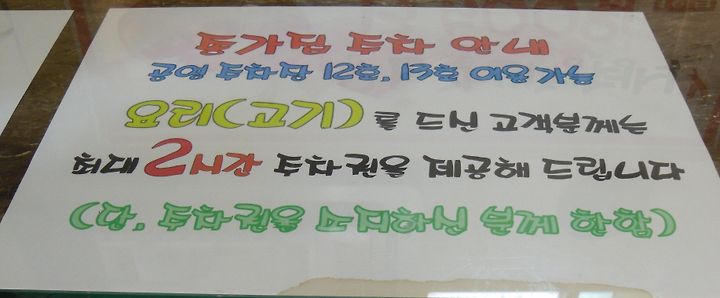 주차 안내
공영 주차장 12호, 13호 이용가능
요리(고기)를 드신 고객분께는
최대 2시간 주차권을 제공해 드립니다
(단, 주차권을 소지하신 분께 한함)